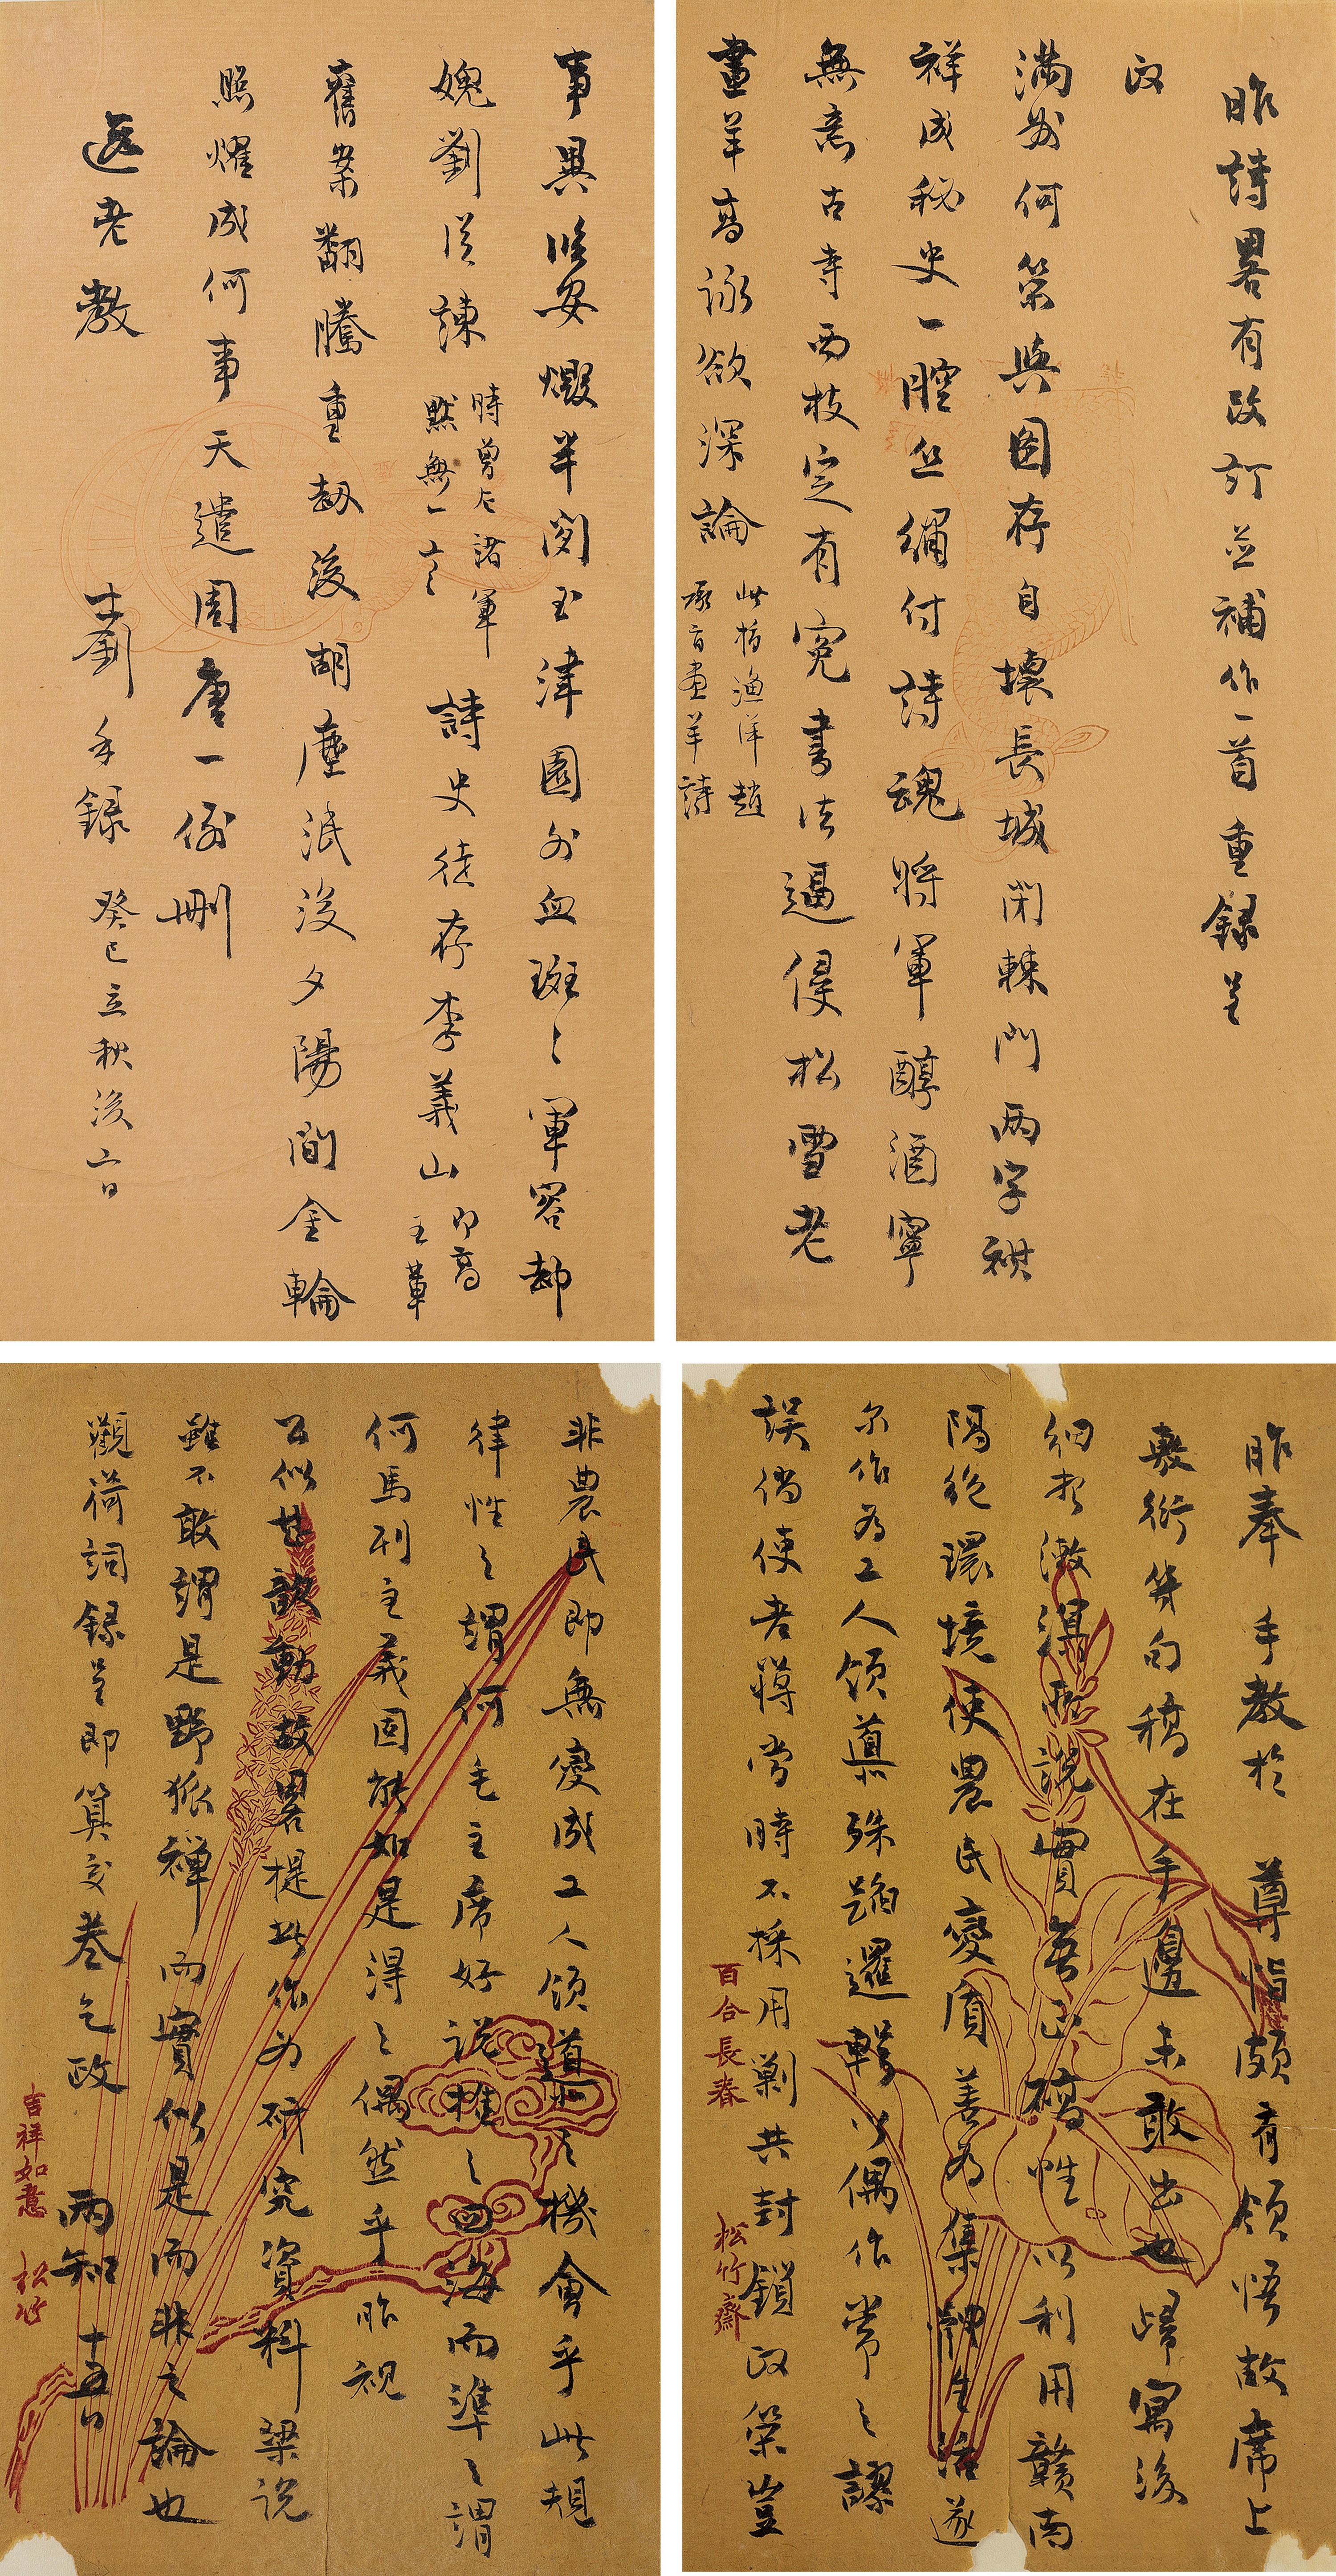 昨詩畧有改訂並補作一首重録呈
政
滿盤何策與圖存自壞長城閉棘門兩字祺
祥成秘史一腔丝繡付詩魂將軍醇酒寧
無意古寺西枝定有冤書法逼侵松雪老
畫羊高詠欲深論此指漁洋趙
承旨畫羊詩
事異臨安爇半閒玉津園外血斑々軍容却
媿劉從諫時曾左諸軍
默無一言詩史徒存李義山即高
主筆
舊案翻騰重劫後胡塵泯沒夕陽間金輪
照燿成何事天遣周唐一例刪
遐老教
士劉手録癸巳立秋後六日
昨奉手教於尊恉頗有領悟故席上
敷衍等句稿在手邊未敢出也歸寓後
細於激得所說實無正確性以利用贛南
隔絶環境使農民變質善為集體生活遂
尔作為工人領導殊蹈邏輯以偶作常之謬
誤倘使老蔣當時不採用剿共封鎖政策豈
非農民即無變成工人領導之機會乎此規
律性之謂何毛主席好說推之四海而準之謂
何馬列主義固能如是得之偶然乎昨視
公似甚歆動故畧提此作為研究資料梁説
雖不敢謂是野狐禪而實似是而非之論也
觀荷詞録呈即算交卷乞政 兩知 十五日
百合長春
松竹齋
吉祥如意
松竹